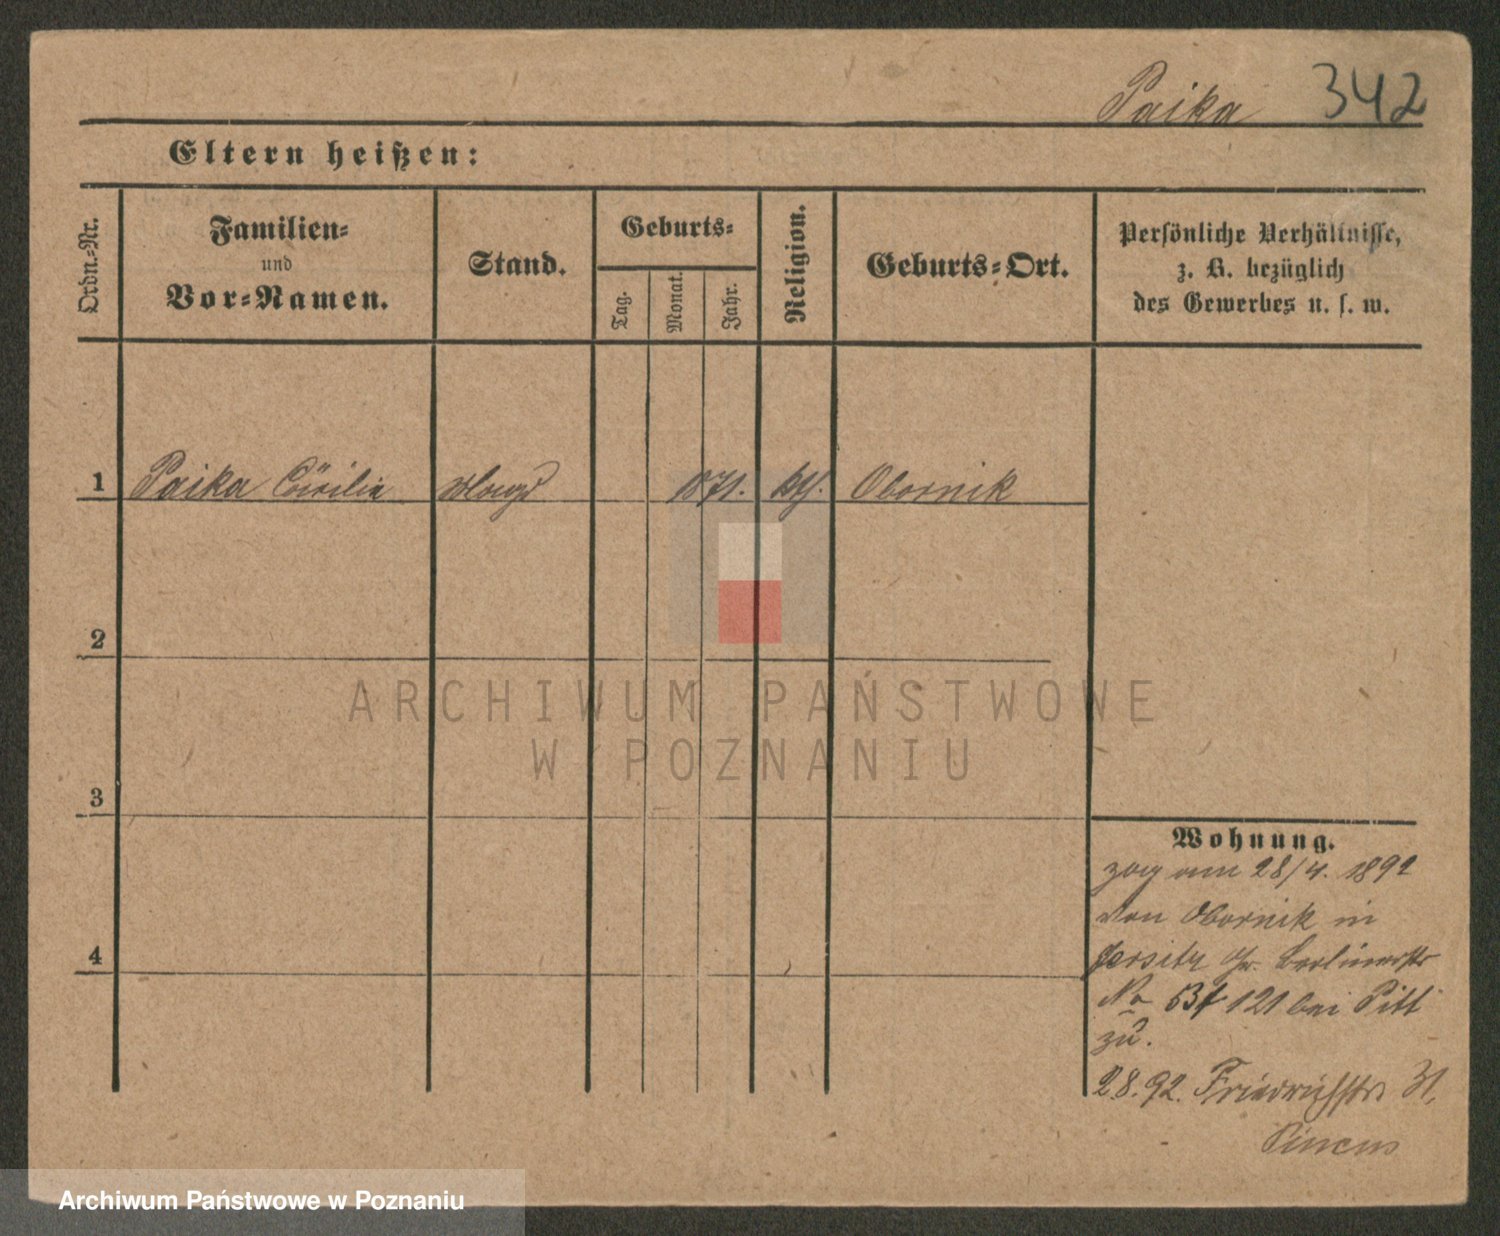 Paika 342
Eltern heißen:
Ordn.-Nr.
Familien-
und
Vor-Namen.
Stand.
Geburts-
Tag.
Monat.
Jahr.
Religion.
Geburts-Ort.
Persönliche Verhältnisse,
z. B. bezüglich
des Gewerbes u. s. w.
1 Paika Cäcilia 1871. kth. Obornik
2
ARCHIWUM PAŃSTWOWE
W POZNANIU
3
Wohnung.
zog am 28/4. 1892
von Obornik in
Jersitz Gr. Berlinerstr
No 121 bei Pitt
zu.
2.8.92. Friedrichstr. 31.
Pincus
4
Archiwum Państwowe w Poznaniu